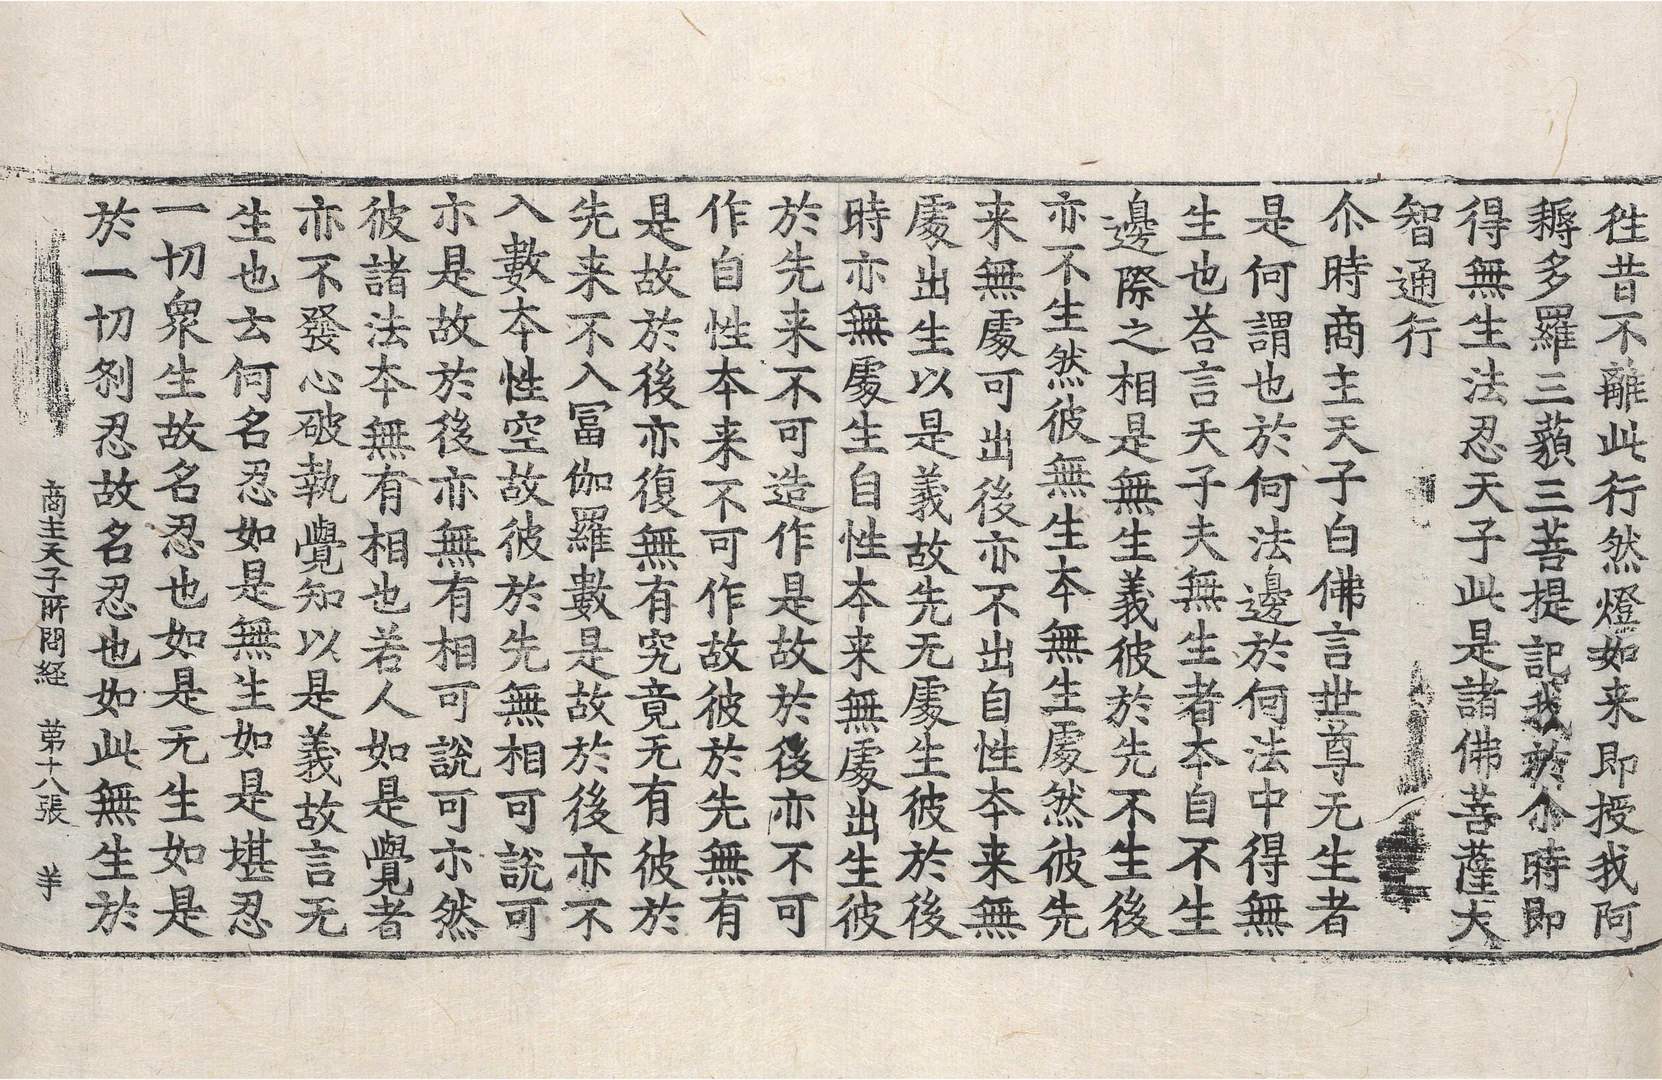 徃昔不離此行然燈如来即授我阿
耨多羅三藐三菩提記我於尒時即
得無生法忍天子此是諸佛菩薩大
智通行
尒時商主天子白佛言世尊无生者
是何謂也於何法邊於何法中得無
生也荅言天子夫無生者夲自不生
邊際之相是無生義彼於先不生後
亦不生然彼無生夲無生處然彼先
来無處可出後亦不出自性夲来無
處出生以是義故先无處生彼於後
時亦無處生自性夲来無處出生彼
於先来不可造作是故於後亦不可
作自性夲来不可作故彼於先無有
是故於後亦復無有究竟无有彼於
先来不入冨伽羅數是故於後亦不
入數夲性空故彼於先無相可說可
亦是故於後亦無有相可說可亦然
彼諸法夲無有相也若人如是覺者
亦不發心破執覺知以是義故言无
生也云何名忍如是無生如是堪忍
一切衆生故名忍也如是无生如是
於一切刹忍故名忍也如此無生於
商主天子所問経　第十八張　羊